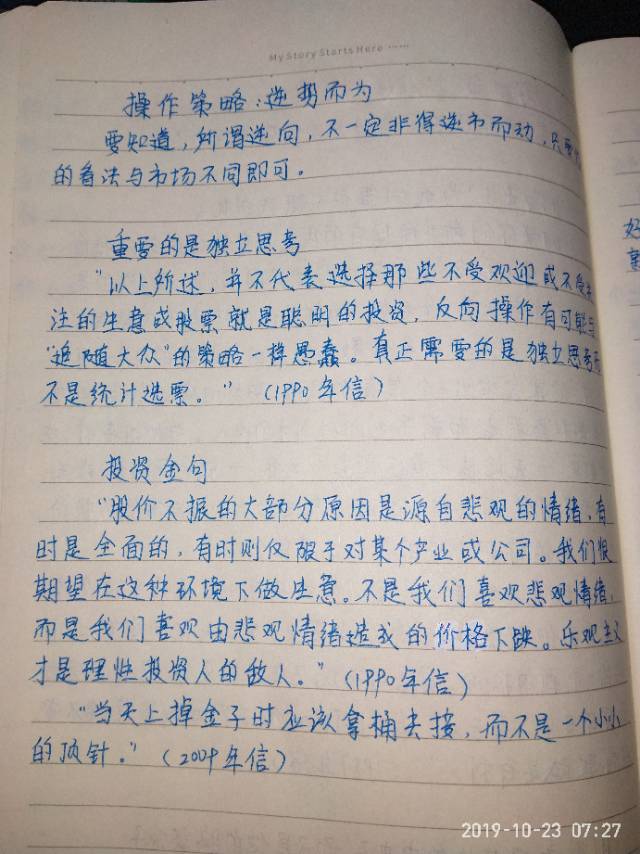 My Story Starts Here ······
操作策略：逆势而为
要知道，所谓逆向，不一定非得逆市而动，只要
的看法与市场不同即可。
重要的是独立思考
“以上所述，并不代表选择那些不受欢迎或不受
注的生意或股票就是聪明的投资，反向操作有可能与
“追随大众”的策略一样愚蠢。真正需要的是独立思考而
不是统计选票。”（1990年信）
投资金句
“股价不振的大部分原因是源自悲观的情绪，有
时是全面的，有时则仅限于对某个产业或公司。我们很
期望在这种环境下做生意。不是我们喜欢悲观情绪，
而是我们喜欢由悲观情绪造成的价格下跌。乐观主义
才是理性投资人的敌人。”（1990年信）
“当天上掉金子时应该拿桶去接，而不是一个小小
的顶针。”（2009年信）
好
2019-10-23 07:27